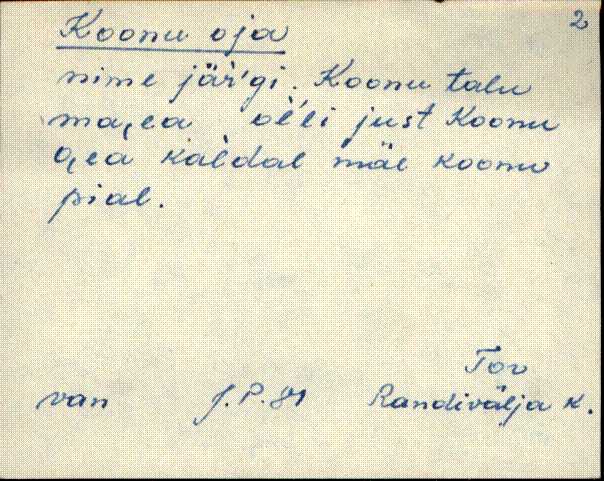 2
Koonu oja
nime jär'gi. Koonu talu
ma,ea ol'li just Koonu
o,ea kaldal mäe koonu
pial.
Tor
van J.P. 81 Randivälja k.